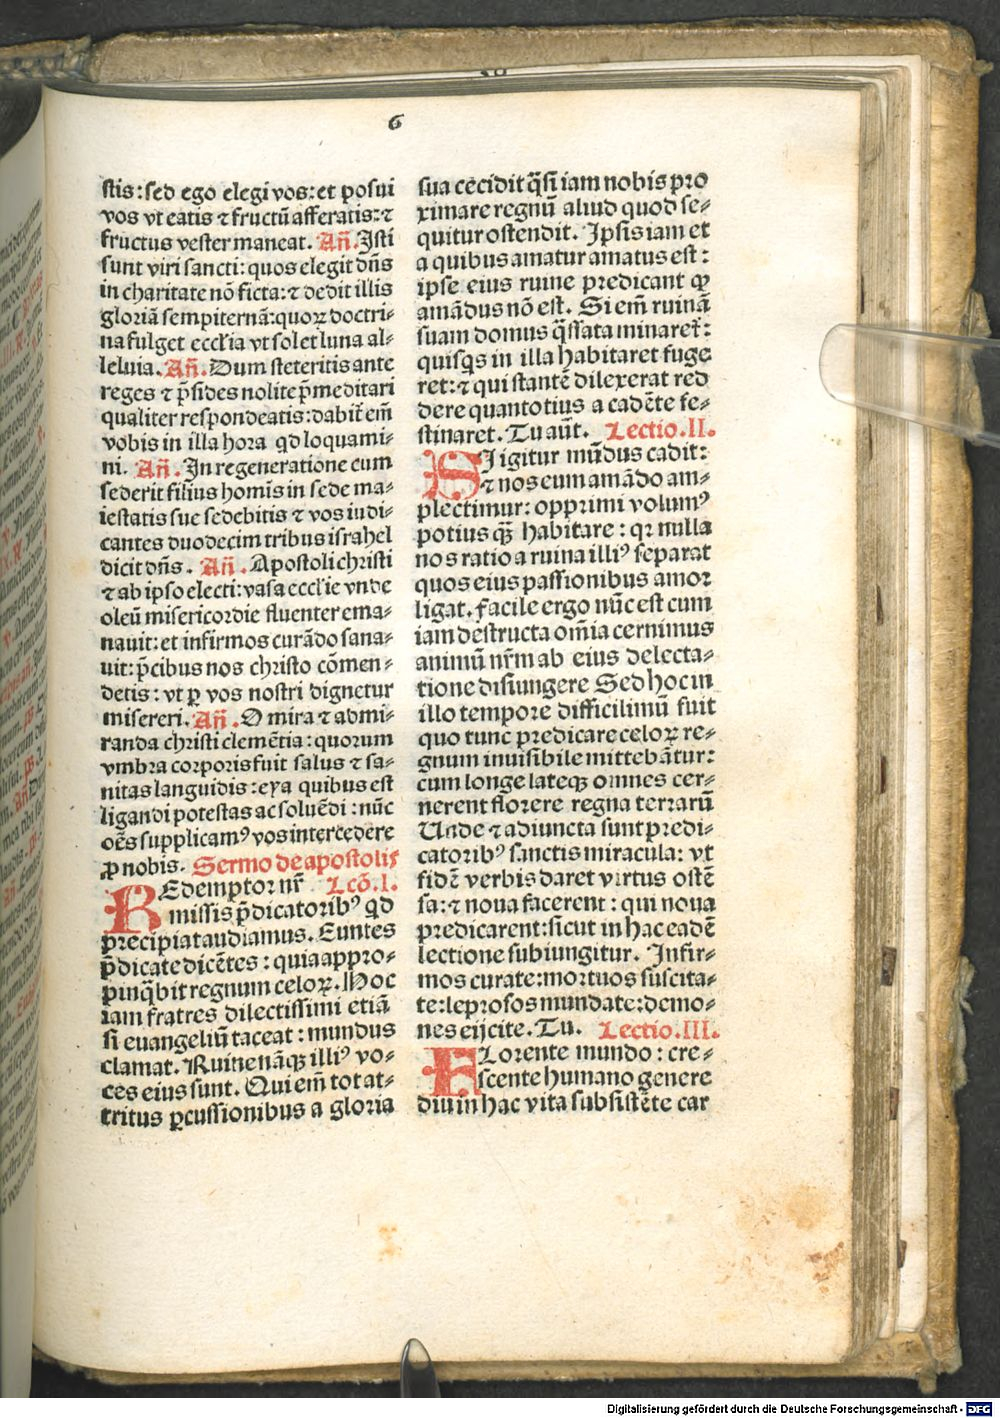 6
ſtis:ſed ego elegi vos:et poſui
vos vt eatis ⁊ fructū afferatis:⁊
fructus veſter maneat. Añ. Iſti
ſunt viri ſancti: quos elegit dñs
in charitate nō ficta:⁊ dedit illis
gloriā ſempiternā:quoꝝ doctri⸗
na fulget eccl'ia vt ſol et luna al⸗
leluia. Añ. Dum ſteteritis ante
reges ⁊ p̄ſides nolite p̄meditari
qualiter reſpondeatis: dabit̄ em̄
vobis in illa hora qd loquami⸗
ni. Añ. In regeneratione cum
ſederit filius homīs in ſede ma⸗
ieſtatis ſue ſedebitis ⁊ vos iudi⸗
cantes duodecim tribus iſrahel
dicit dñs. Añ. Apoſtoli chriſti
⁊ ab ipſo electi: vaſa eccl'ie vnde
oleū miſericordie fluenter ema⸗
nauit: et infirmos curādo ſana⸗
uit: p̄cibus nos chriſto cōmen⸗
detis: vt ꝑ vos noſtri dignetur
miſereri. Añ. O mira ⁊ admi⸗
randa chriſti clemētia: quorum
vmbra corporis fuit ſalus ⁊ ſa⸗
nitas languidis: eya quibus eſt
ligandi poteſtas ac ſoluēdi: nūc
oēs ſupplicamꝰ vos intercedere
ꝓ nobis. Sermo de apoſtolis
REdemptor nr̄ Lcō.I.
miſſis p̄dicatoribꝰ qd
precipiat audiamus. Euntes
p̄dicate dicētes: quia appro⸗
pinq̄bit regnum celoꝝ. Hoc
iam fratres dilectiſſimi etiā
ſi euangeliū taceat: mundus
clamat. Ruine nāqꝫ illiꝰ vo⸗
ces eius ſunt. Qui em̄ tot at⸗
tritus ꝑcuſſionibus a gloria
ſua cecidit q̄ſi iam nobis pro
ximare regnū aliud quod ſe⸗
quitur oſtendit. Ipſis iam et
a quibus amatur amatus eſt:
ipſe eius ruine predicant ꝙ
amādus nō eſt. Si em̄ ruinā
ſuam domus q̄ſſata minaret̄:
quiſq̄s in illa habitaret fuge
ret:⁊ qui ſtantē dilexerat red
dere quantotius a cadēte fe⸗
ſtinaret. Tu aūt. Lectio.II.
SI igitur mūdus cadit:
⁊ nos eum amādo am⸗
plectimur: opprimi volumꝰ
potius qꝫ̄ habitare: qꝛ nulla
nos ratio a ruina illiꝰ ſeparat
quos eius paſſionibus amor
ligat. facile ergo nūc eſt cum
iam deſtructa om̄ia cernimus
animū nr̄m ab eius delecta⸗
tione diſiungere Sed hoc in
illo tempore difficilimū fuit
quo tunc predicare celoꝝ re⸗
gnum inuiſibile mittebātur:
cum longe lateqꝫ omnes cer⸗
nerent florere regna terrarū
Unde ⁊ adiuncta ſunt predi⸗
catoribꝰ ſanctis miracula: vt
fidē verbis daret virtus oſtē
ſa:⁊ noua facerent: qui noua
predicarent:ſicut in hac eadē
lectione ſubiungitur. Infir⸗
mos curate:mortuos ſuſcita⸗
te:leproſos mundate:demo⸗
nes eijcite. Tu. Lectio.III.
FLorente mundo: cre⸗
ſcente humano genere
diu in hac vita ſubſiſtēte car
Digitalisierung gefördert durch die Deutsche Forschungsgemeinschaft - DFG